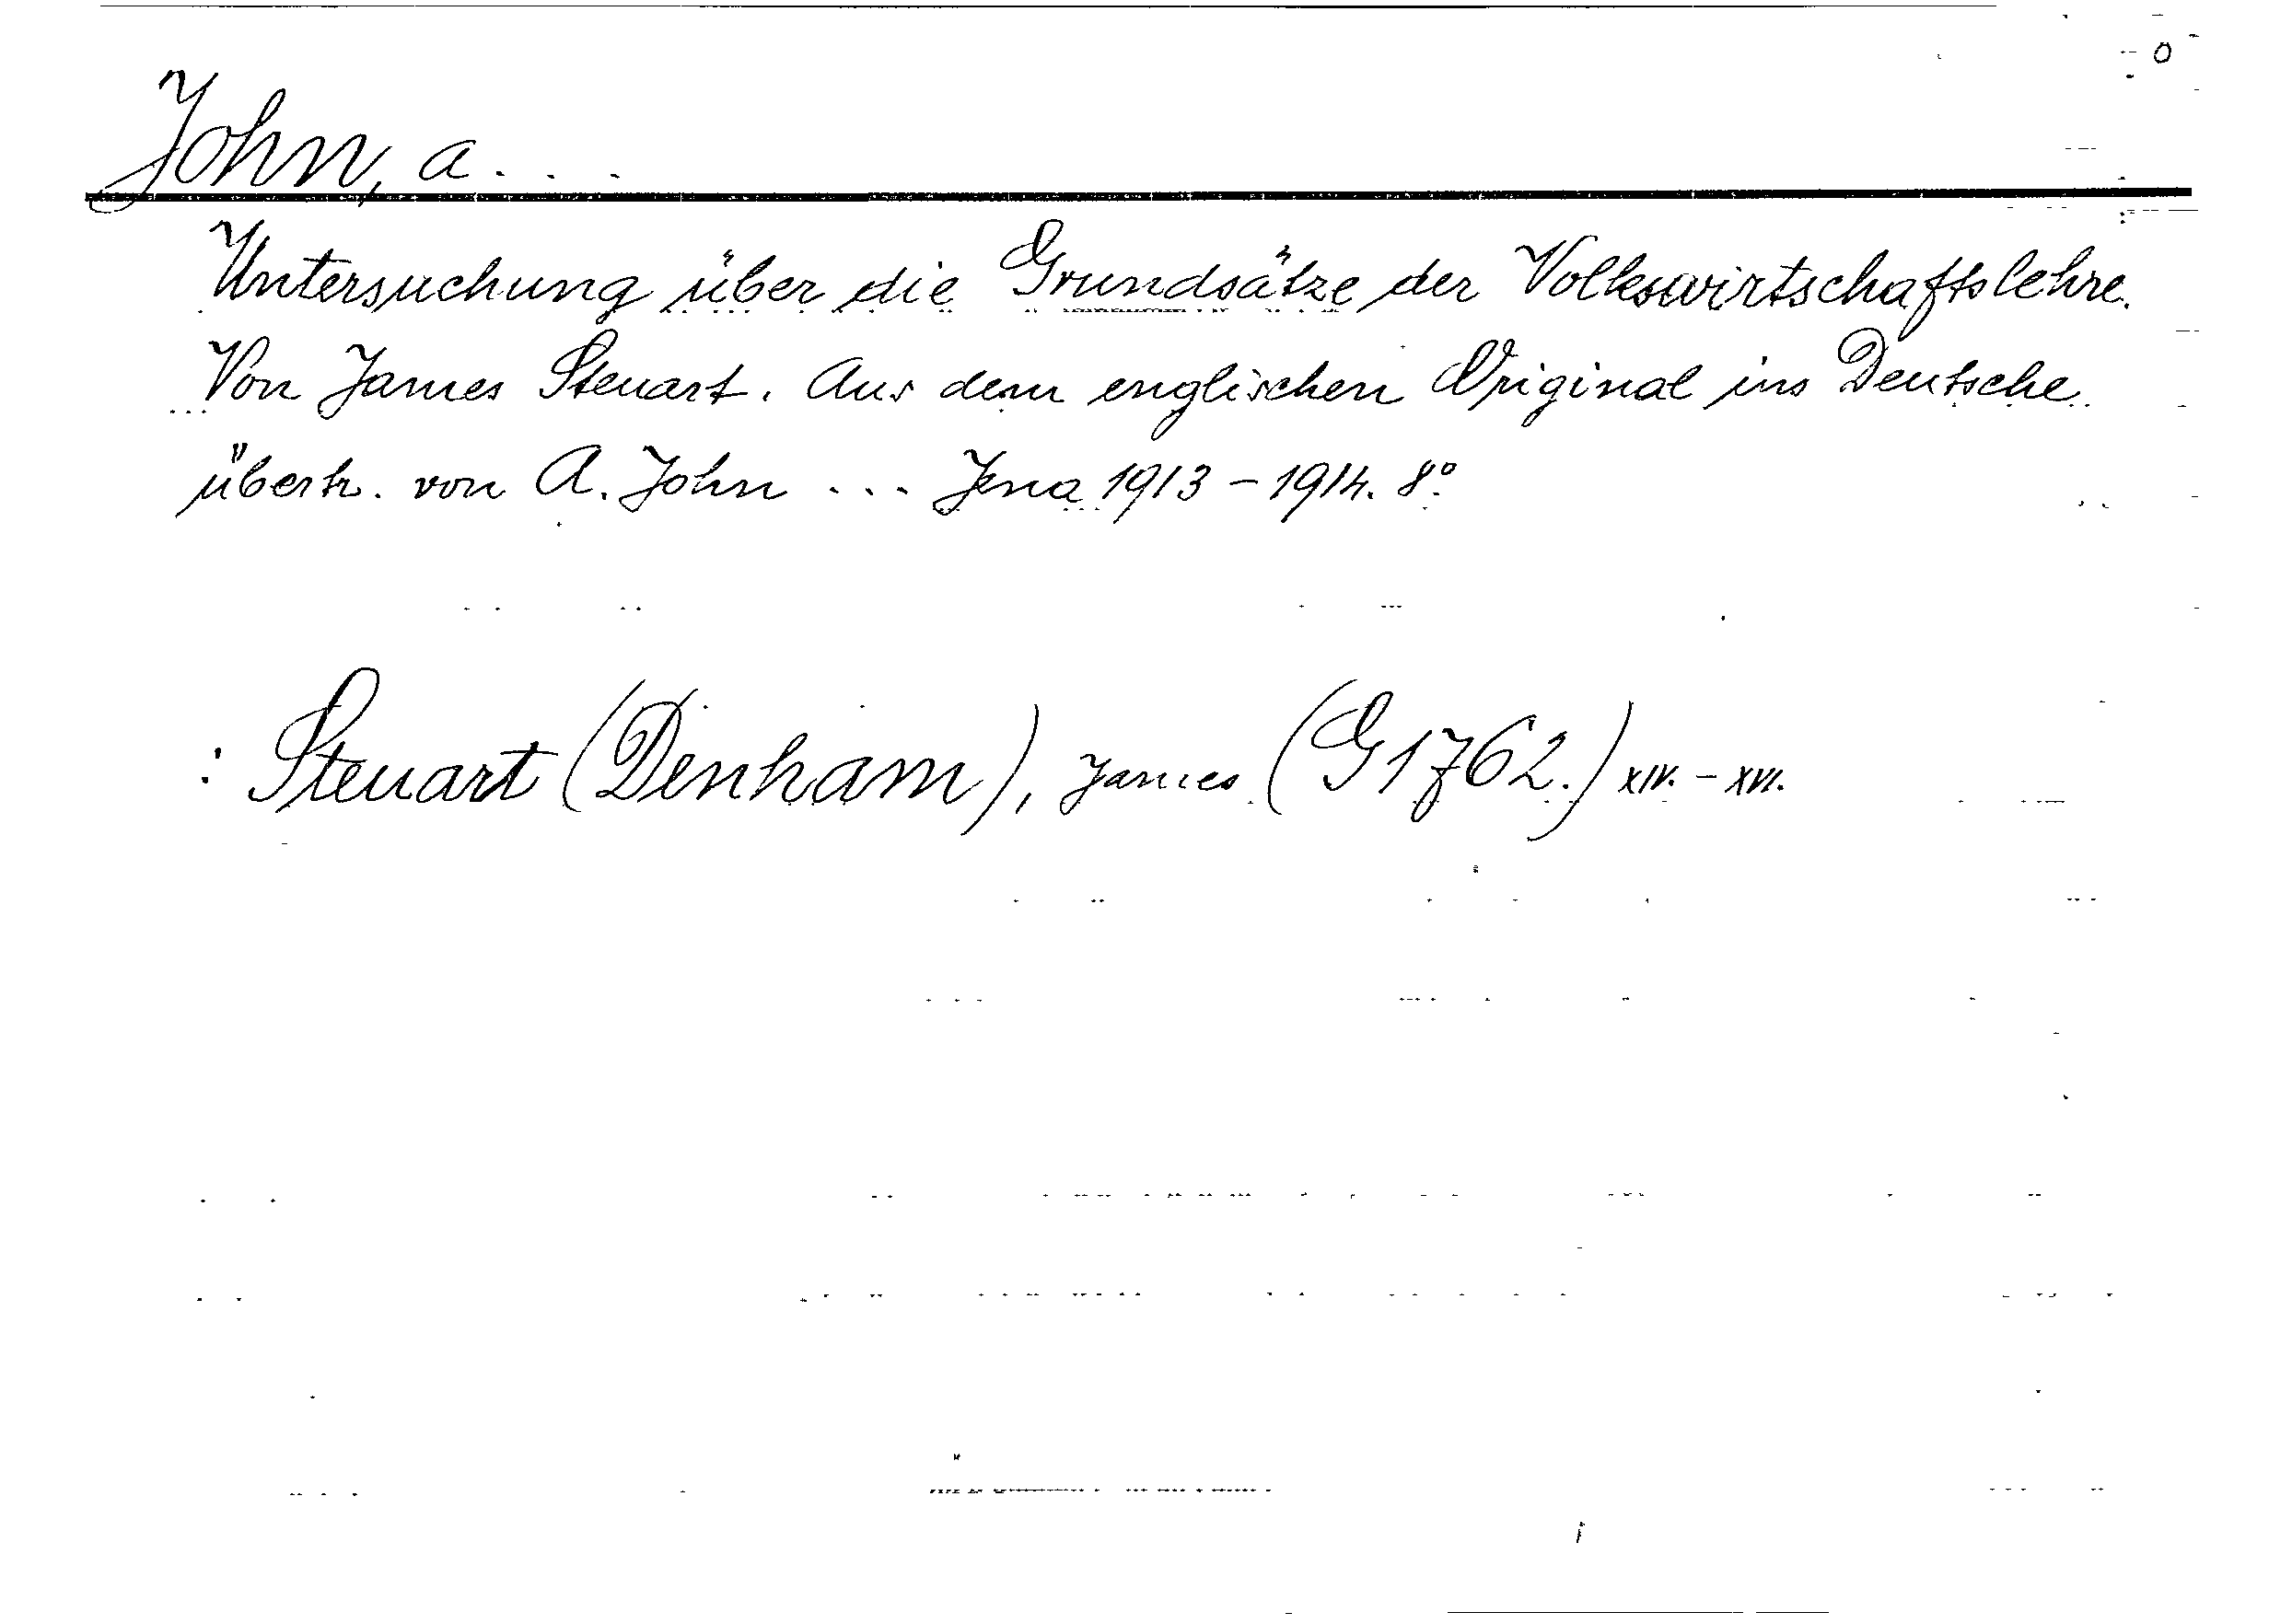 John, A. . .
Untersuchung über die Grundsätze der Volkswirtschaftslehre.
Von James Steuart. Aus dem englischen Original ins Deutsche
übertr. von A. John ... Jena 1913-1914. 8°.
: Steuart (Denham), James (G1762.) XIV. - XVI.